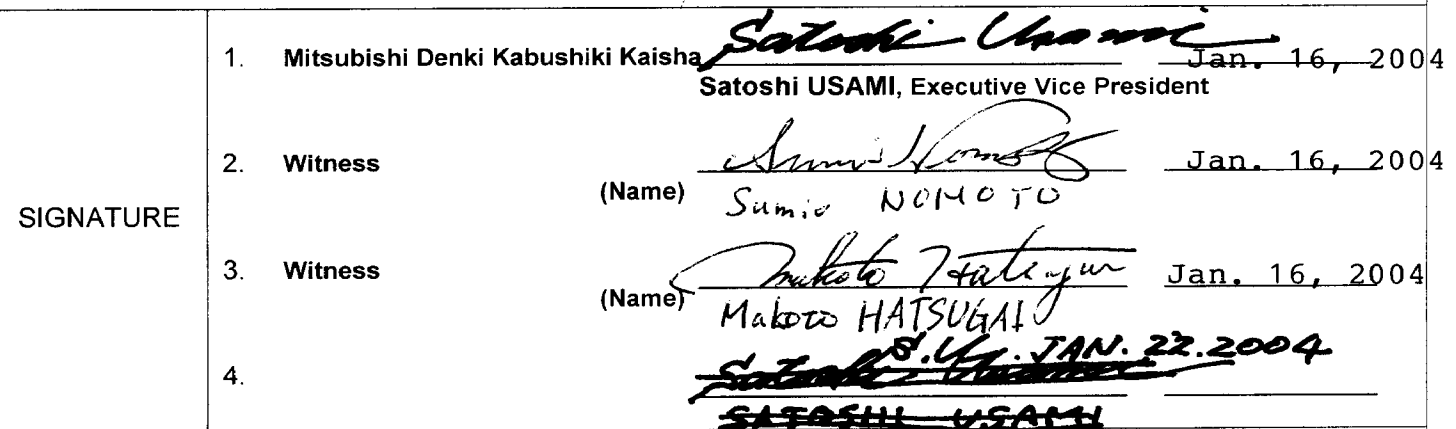 SIGNATURE
1. Mitsubishi Denki Kabushiki Kaisha Satoshi Usami Jan. 16, 2004
Satoshi USAMI, Executive Vice President
2. Witness Sumio Nomoto Jan. 16, 2004
(Name) Sumio NOMOTO
3. Witness Makoto Hatsugai Jan. 16, 2004
(Name) Makoto HATSUGAI
S.U. JAN. 22. 2004
4. Satoshi Usami
SATOSHI USAMI